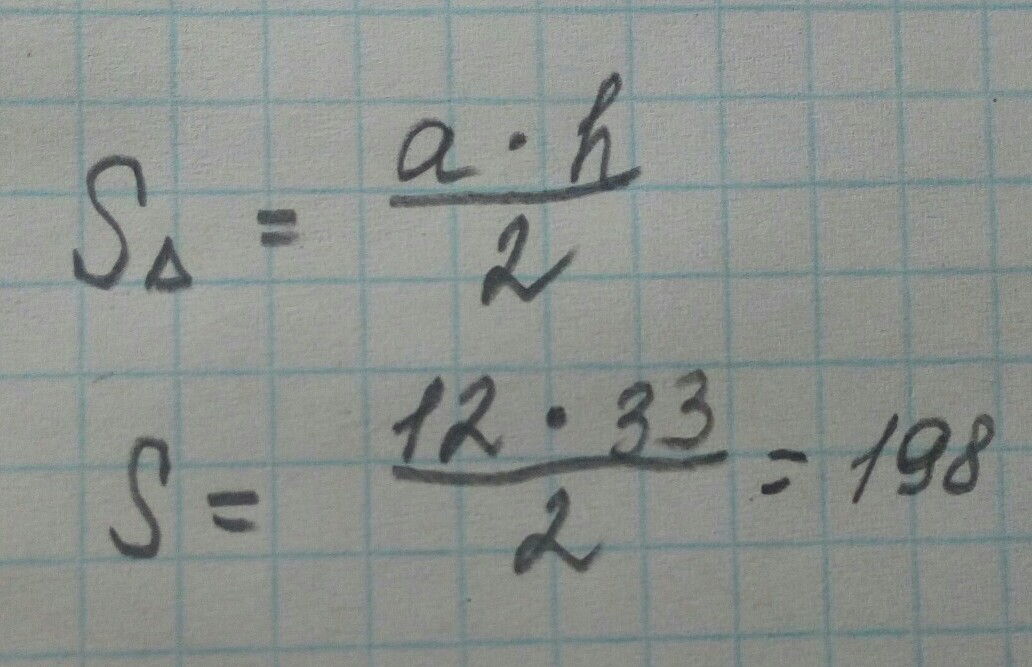 S△ = a · h / 2
S = 12 · 33 / 2 = 198